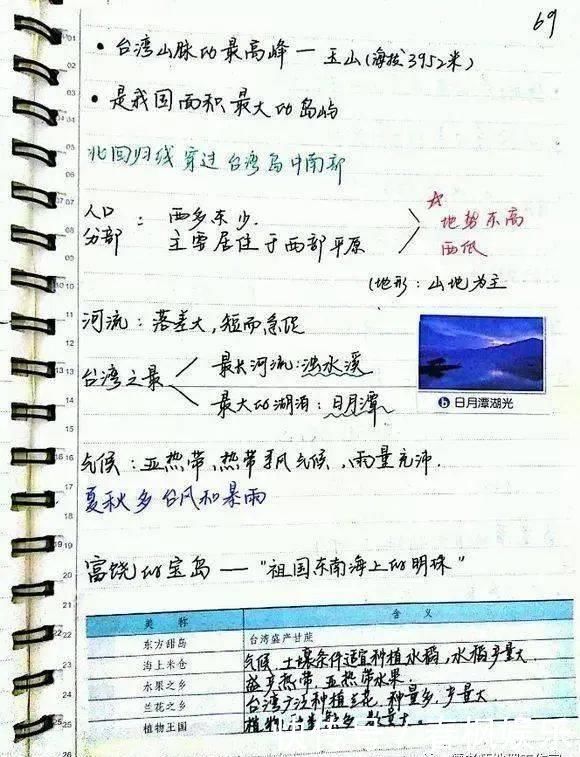 69
• 台湾山脉的最高峰 — 玉山(海拔3952米)
• 是我国面积最大的岛屿
北回归线穿过台湾岛中南部
人口分部：西多东少.
主要居住于西部平原
☆地势东高西低
(地形：山地为主
河流：落差大，短而急促
台湾之最
最长河流：浊水溪
最大的湖泊：日月潭
b 日月潭湖光
气候：亚热带、热带季风气候，雨量充沛.
夏秋多台风和暴雨
富饶的宝岛 —— "祖国东南海上的明珠"
美称 含义
东方甜岛 台湾盛产甘蔗
海上米仓 气候、土壤条件适宜种植水稻，水稻产量大
水果之乡 盛产热带、亚热带水果.
兰花之乡 台湾广泛种植兰花，种量多，产量大
植物王国 植物种类繁多